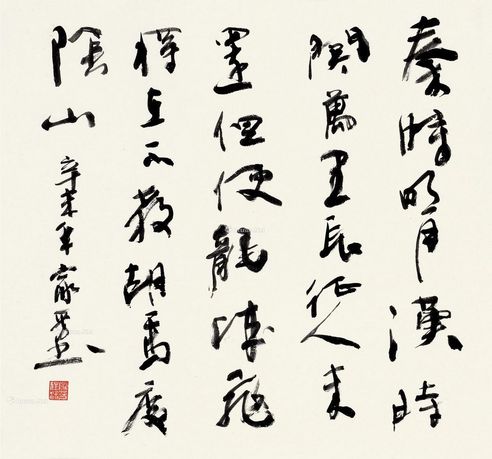 秦時明月漢時
關萬里長征人未
還但使龍城飛
將在不教胡馬度
陰山 辛未年家